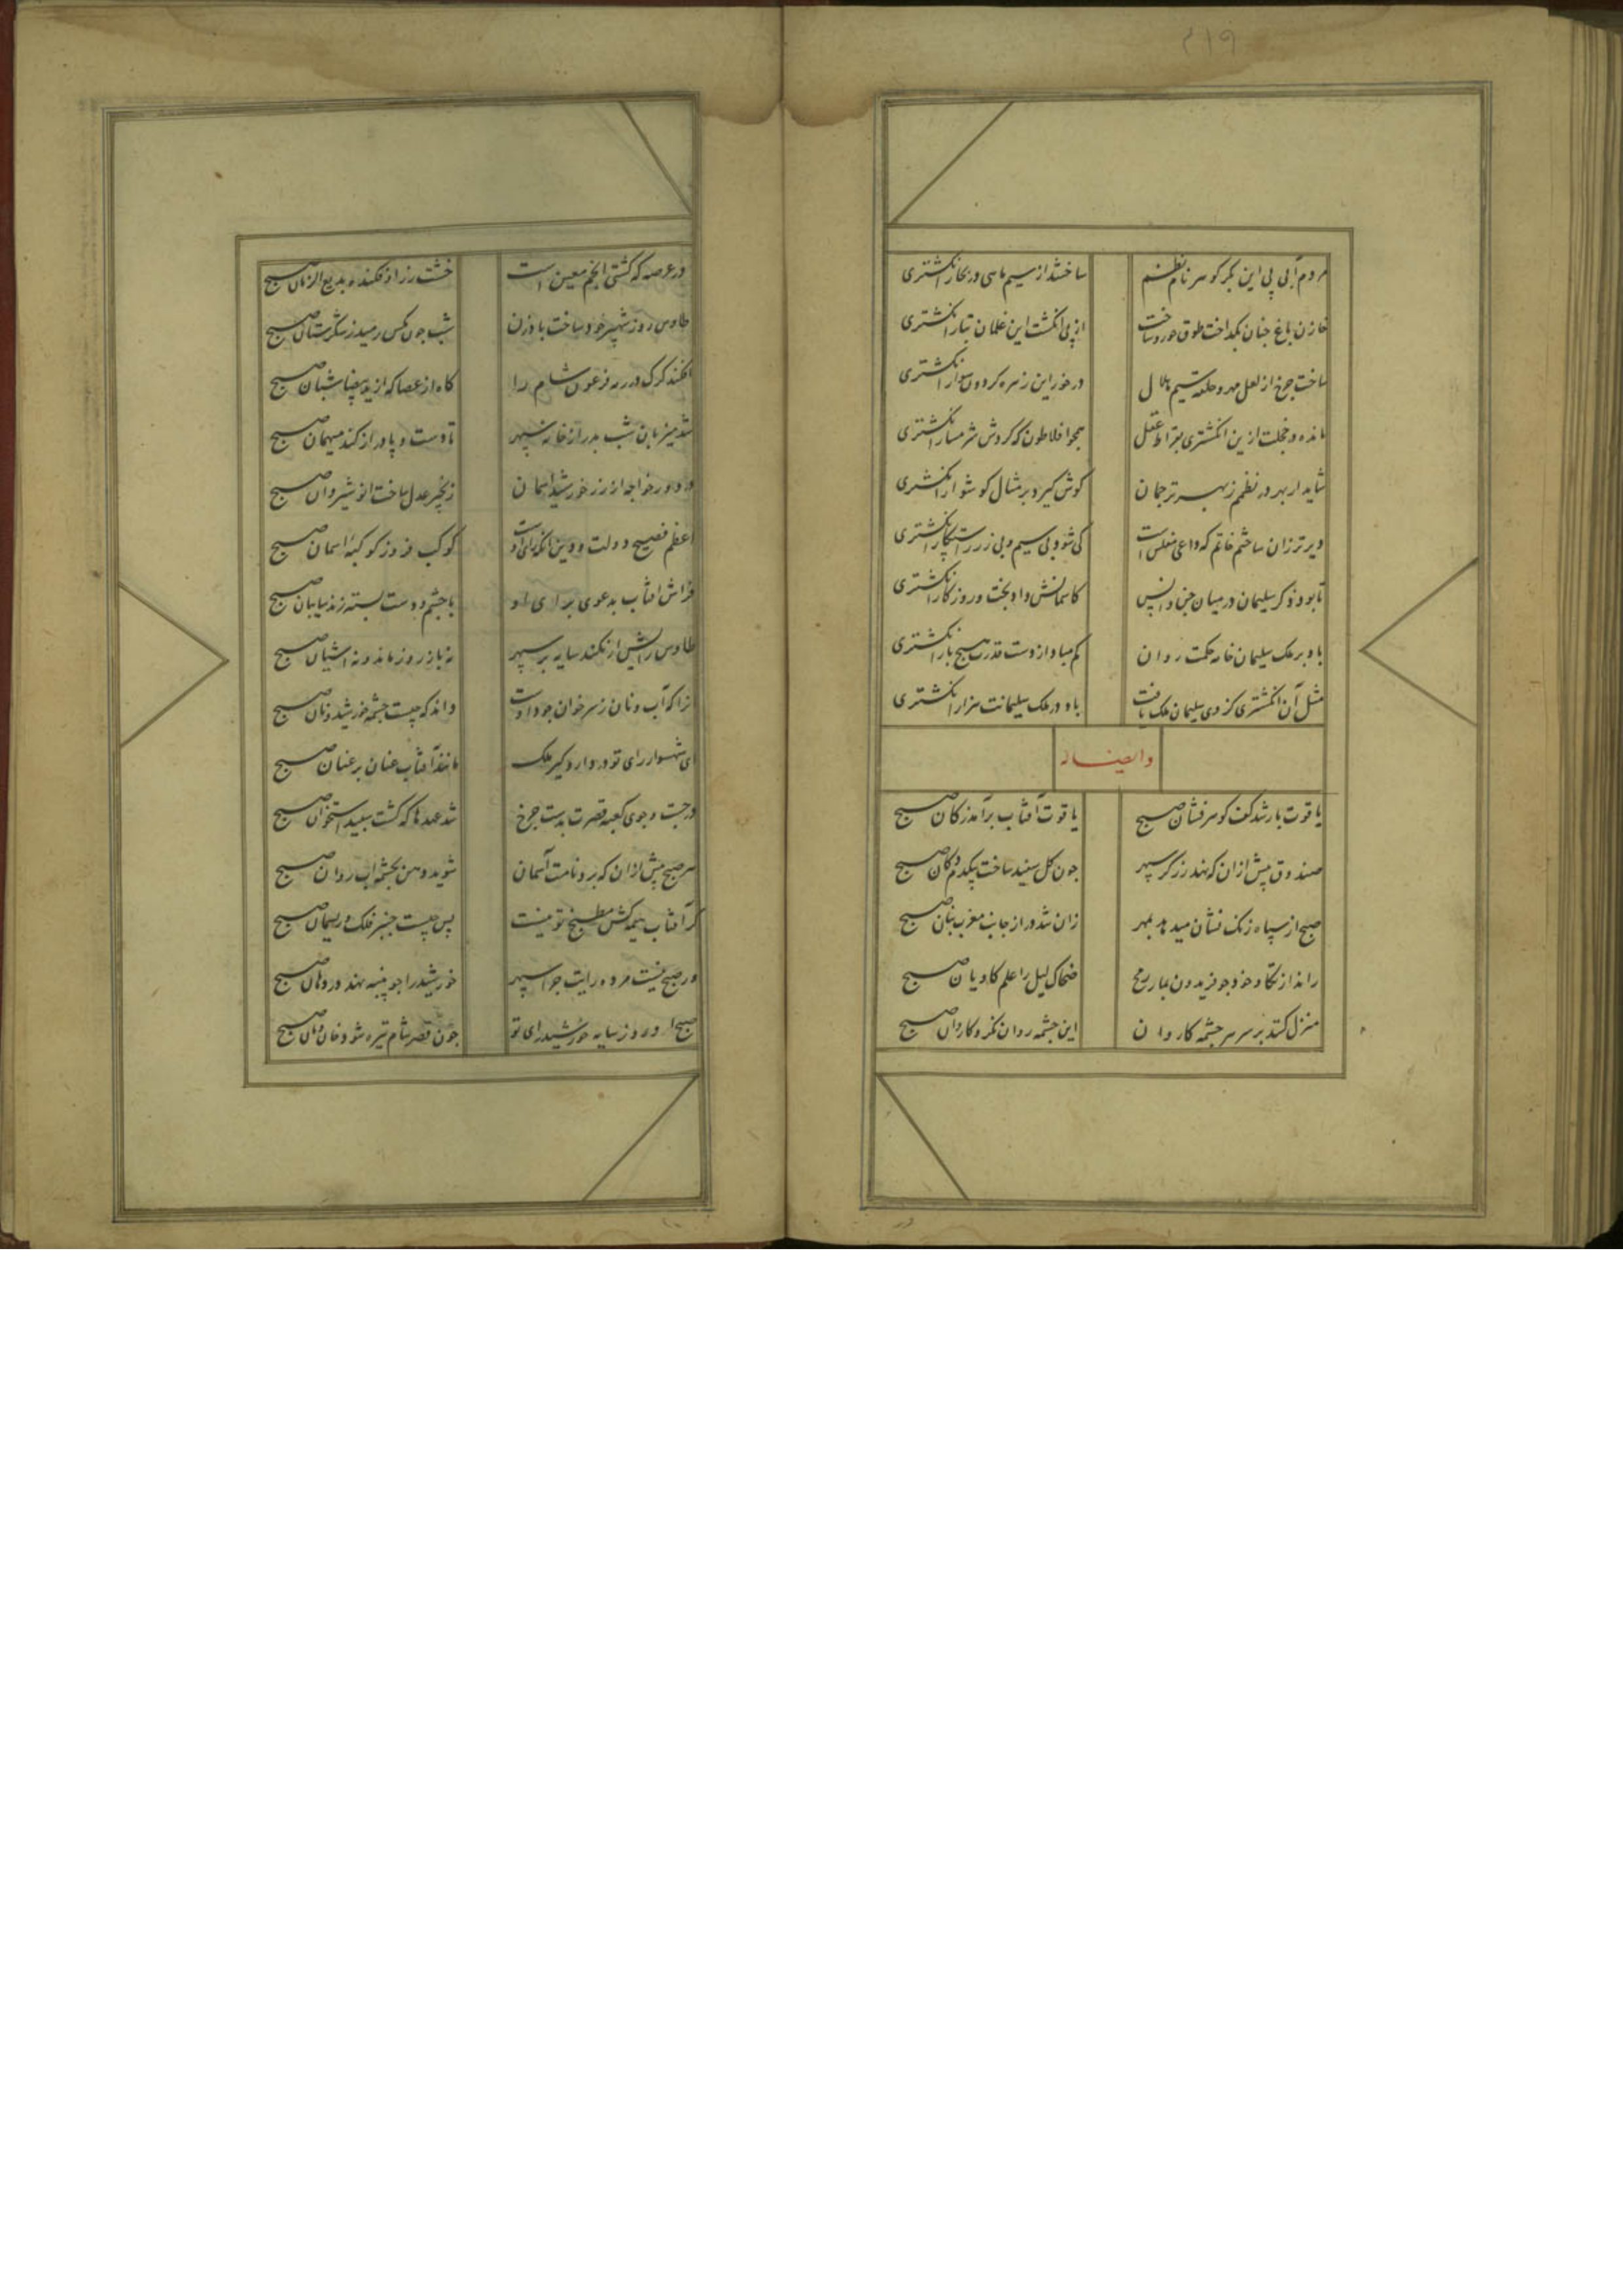 ۲۱۹
مردم آبی پی این بکر کوهر نام نظم
ساختند از سیم ماهی در بحار انکشتری
خازن باغ جنان بکداخت طوق حور و ساخت
از پی انکشت این غلمان تبار انکشتری
ساخت جرخ از لعل مهر و حلقه سیم هلال
در خور این زهره کردون سوار انکشتری
مانده در خجلت ازین انکشتری بقراط عقل
همجو افلاطون که کردش شرمسار انکشتری
شاید ار بهر در نظمم ز بهر ترجمان
کوش کیرد بر مثال کوشوار انکشتری
دیرتر زان ساختم خاتم که داعی مفلس است
کی شود بی سیم و بی زر راست کار انکشتری
تا بود ذکر سلیمان در میان جن و انس
کاسمانش داد و بخت و روزکار انکشتری
باد بر ملک سلیمان خامه حکمت روان
کم مباد از دست قدرت هیچ بار انکشتری
مثل آن انکشتری کز وی سلیمان ملک یافت
باد در ملک سلیمانت هزار انکشتری
و ایضا له
یاقوت بار شد کف کوهر فشان صبح
یاقوت آفتاب برآمد ز کان صبح
صندوق پیش ازان که نهد زرکر سپهر
جون کل سفید ساخت بیکدم دکان صبح
صبح از سپاه زنک نشان میدهد بمهر
زان شد دراز جانب مغرب بنان صبح
راند از تکاو خود جو فریدون بمار رمح
ضحاک لیل را علم کاویان صبح
منزل کند بر سر سرجشمه کاروان
این جشمه روان نکر و کاروان صبح
در عرصه که کشتی انجم معین است
خشت زر اوفکنده بدیع الزمان صبح
طاوس روز شهپر خود ساخت بادزن
شب جون مکس رمید ز شکرستان صبح
افکند کرک در رمه فرعون شام را
کاه از عصا که از ید بیضا شبان صبح
شد میزبان شب بدر از خانه سپهر
تا دست و پا دراز کند میهمان صبح
در دور خواجه از زر خورشید آسمان
زنجیر عدل ساخت انوشیروان صبح
اعظم فصیح دولت و دین انکه رای اوست
کوکب فروز کوکبه آسمان صبح
فراش آفتاب بدعوی برای او
با جشم و دست بسته زند سایبان صبح
طاوس رایش ار نکند سایه بر سپهر
نه باز روز ماند و نه آشیان صبح
نزا که آب و نان ز سر خوان جود اوست
داند که جیست جشمه خورشید و نان صبح
ای شهسوار رای تو در دار و کیر ملک
مانند آفتاب عنان بر عنان صبح
در جست و جوی کعبه قصرت بدست جرخ
شد عهدها که کشت سپید استخوان صبح
هر صبح پیش ازان که برد نامت آسمان
شوید دهن بجشمه آب روان صبح
کر آفتاب هیمه کش مطبخ تو نیست
پس جیست جنبر فلک و ریسمان صبح
ور صبح نیست مرده رایت جرا سپهر
خورشید را جو پنبه نهد در دهان صبح
صبحا در روز سایه خورشید رای تو
جون قصر شام تیره شود خان و مان صبح